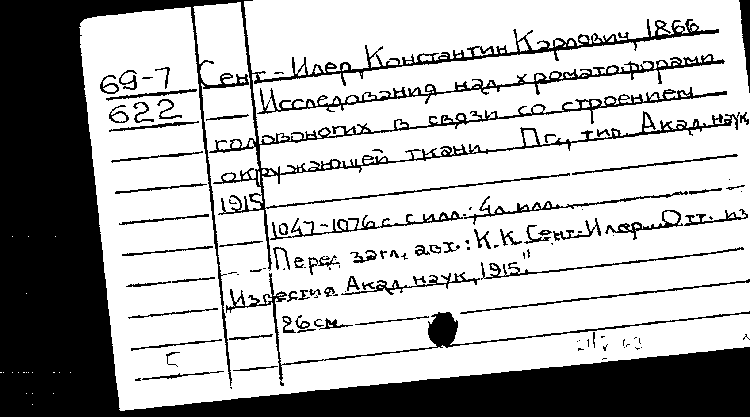 69-7 Сент-Илер, Константин Карлович, 1866
622 Исследования над хроматофорами
головоногих в связи со строением
окружающей ткани. Пг., тип. Акад. наук,
1915
1047-1076 с. с илл.; 4 л. илл.
Перед загл. авт.: К.К. Сент-Илер. Отт. из
"Известия Акад. наук, 1915."
26 см.